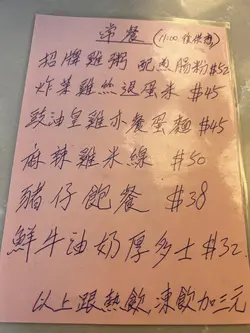 常餐 (11:00 後供應)
招牌雞粥 配煎腸粉 $52
炸菜雞絲湯蛋米 $45
豉油皇雞亦餐蛋麵 $45
麻辣雞米線 $50
豬仔飽餐 $38
鮮牛油奶厚多士 $32
以上跟熱飲,凍飲加三元